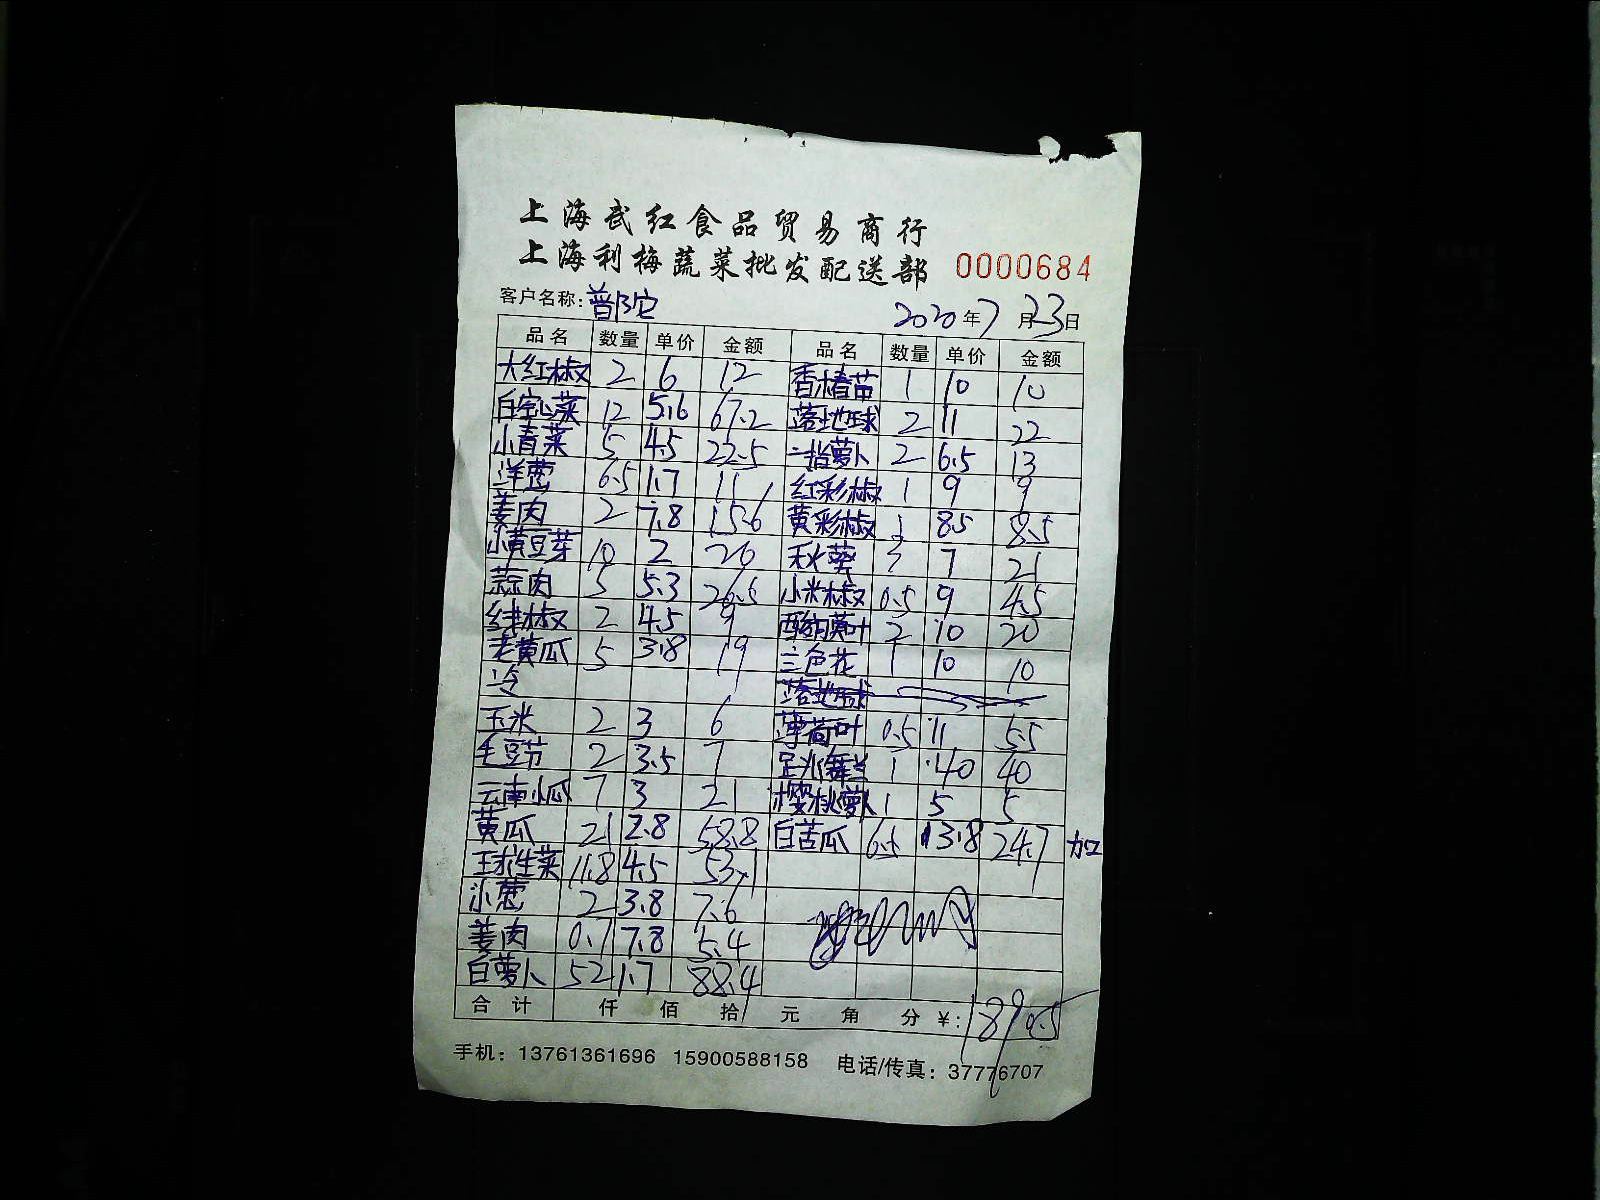 上海武红食品贸易商行
上海利梅蔬菜批发配送部 0000684
客户名称：普陀 2020年7月23日
品名 数量 单价 金额 品名 数量 单价 金额
大红椒 2 6 12 香椿苗 1 10 10
白空心菜 12 5.6 67.2 落地球 2 11 22
小青菜 5 4.5 22.5 手指萝卜 2 6.5 13
洋葱 6.5 1.7 11 红彩椒 1 9 9
姜肉 2 7.8 15.6 黄彩椒 1 8.5 8.5
小黄豆芽 10 2 20 秋葵 3 7 21
蒜肉 5 5.3 26.5 小米椒 0.5 9 4.5
线椒 2 4.5 9 酸模叶 2 10 20
老黄瓜 5 3.8 19 三色花 1 10 10
冷 落地球
玉米 2 3 6 薄荷叶 0.5 11 5.5
毛豆节 2 3.5 7 足水舞兰 1 40 40
云南小瓜 7 3 21 樱桃萝卜 1 5 5
黄瓜 21 2.8 58.8 白苦瓜 6.5 3.8 24.7 加
球生菜 11.8 4.5 53.1
小葱 2 3.8 7.6
姜肉 0.7 7.8 5.4
白萝卜 52 1.7 88.4
合计 仟 佰 拾 元 角 分 ¥:
手机：13761361696 15900588158 电话/传真：37776707